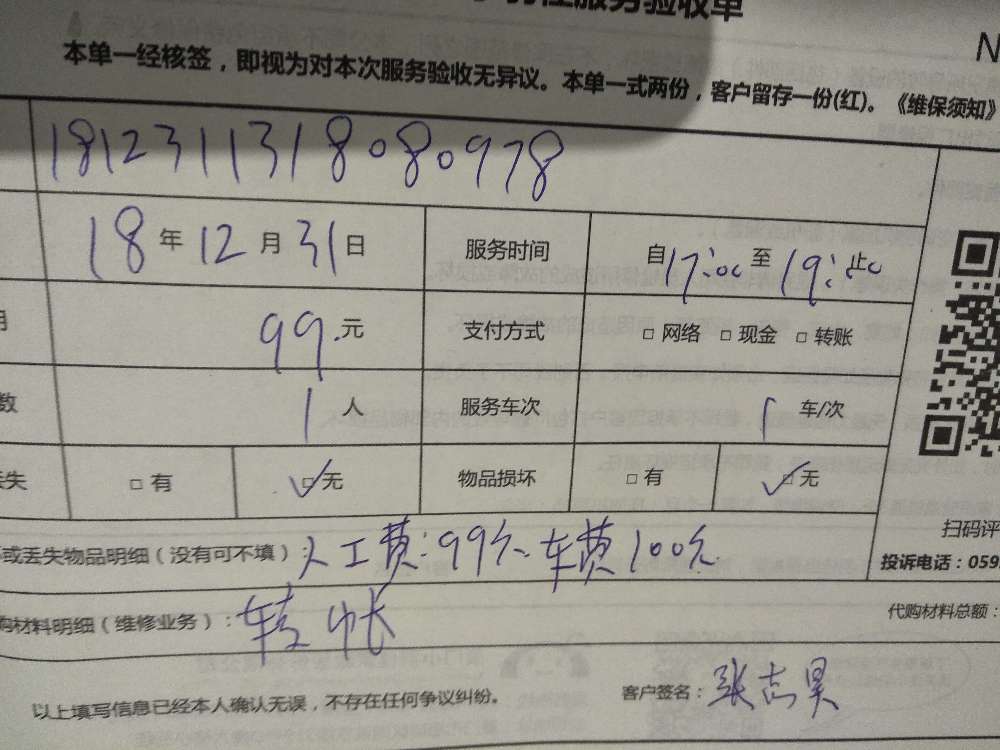 服务验收单
N
本单一经核签，即视为对本次服务验收无异议。本单一式两份，客户留存一份(红)。《维保须知》
181231131808 0978
18年12月31日 服务时间 自17:00至19:止00
99.元 支付方式 □网络 □现金 □转账
数 1人 服务车次 1车/次
丢失 □有 ☑无 物品损坏 □有 ☑无
扫码评
或丢失物品明细（没有可不填）：人工费：99元、车费100元
投诉电话：059
购材料明细（维修业务）：转帐
代购材料总额：
以上填写信息已经本人确认无误，不存在任何争议纠纷。 客户签名：张志昊